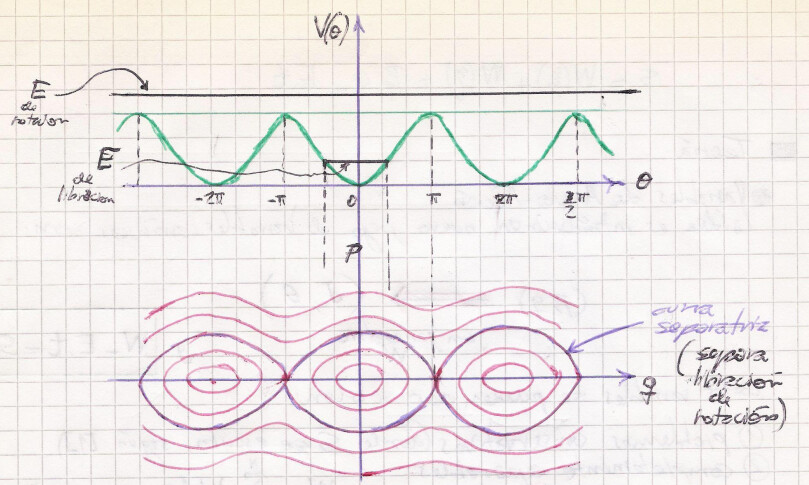 V(θ)
E
de
rotación
E
de
libración
-2π
-π
0
π
2π
3/2 π
θ
P
curva
separatriz
(separa
libración
de
rotación)
q